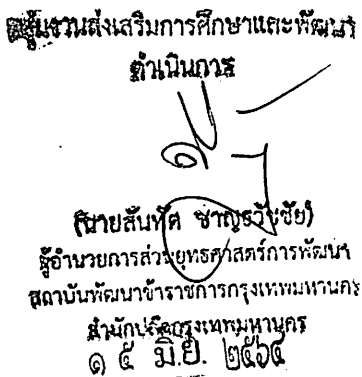 กลุ่มงานส่งเสริมการศึกษาและพัฒนา
ดำเนินการ
(นายสันทัต ชาญธวัชชัย)
ผู้อำนวยการส่วนยุทธศาสตร์การพัฒนา
สถาบันพัฒนาข้าราชการกรุงเทพมหานคร
สำนักปลัดกรุงเทพมหานคร
๑ ๕ มิ.ย. ๒๕๖๔